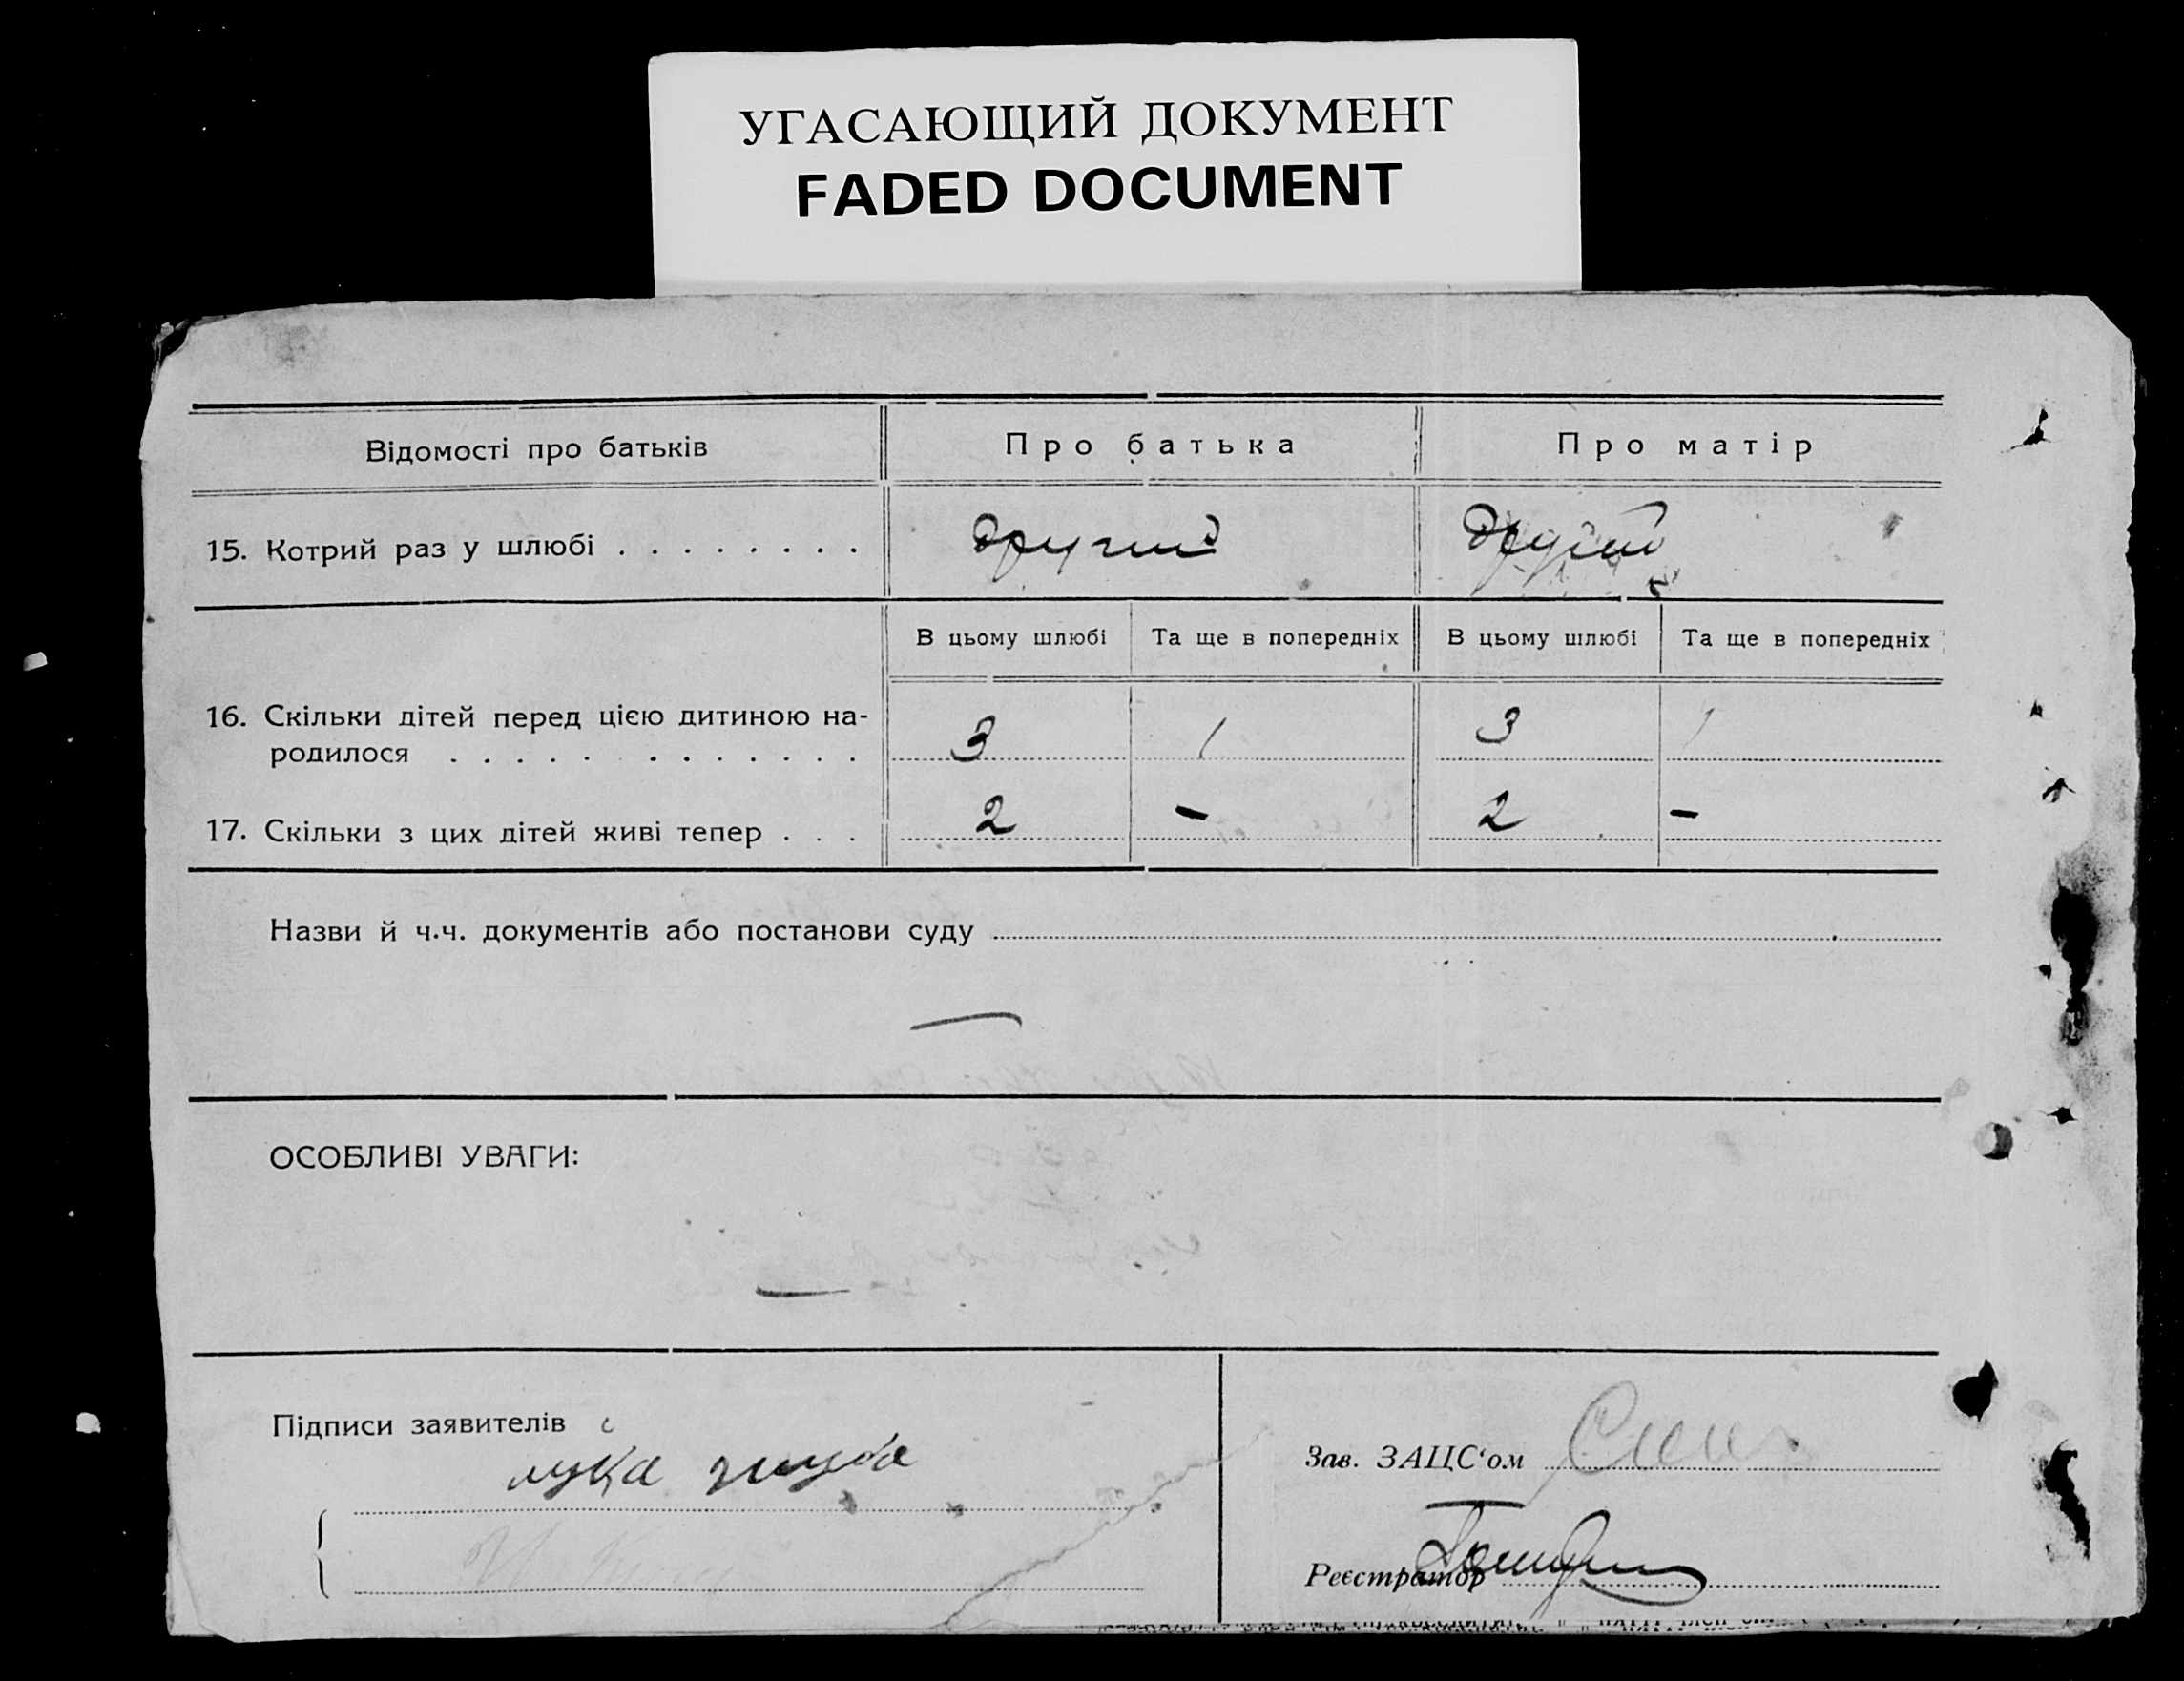 УГАСАЮЩИЙ ДОКУМЕНТ
FADED DOCUMENT
Відомості про батьків Про батька Про матір
15. Котрий раз у шлюбі . . . . . . . . другий другий
В цьому шлюбі Та ще в попередніх В цьому шлюбі Та ще в попередніх
16. Скільки дітей перед цією дитиною на-
родилося . . . . . . . . . . . . 3 1 3 1
17. Скільки з цих дітей живі тепер . . . 2 – 2 –
Назви й ч.ч. документів або постанови суду
—
ОСОБЛИВІ УВАГИ:
—
Підписи заявителів
лука
Зав. ЗАЦС‘ом
Реєстратор